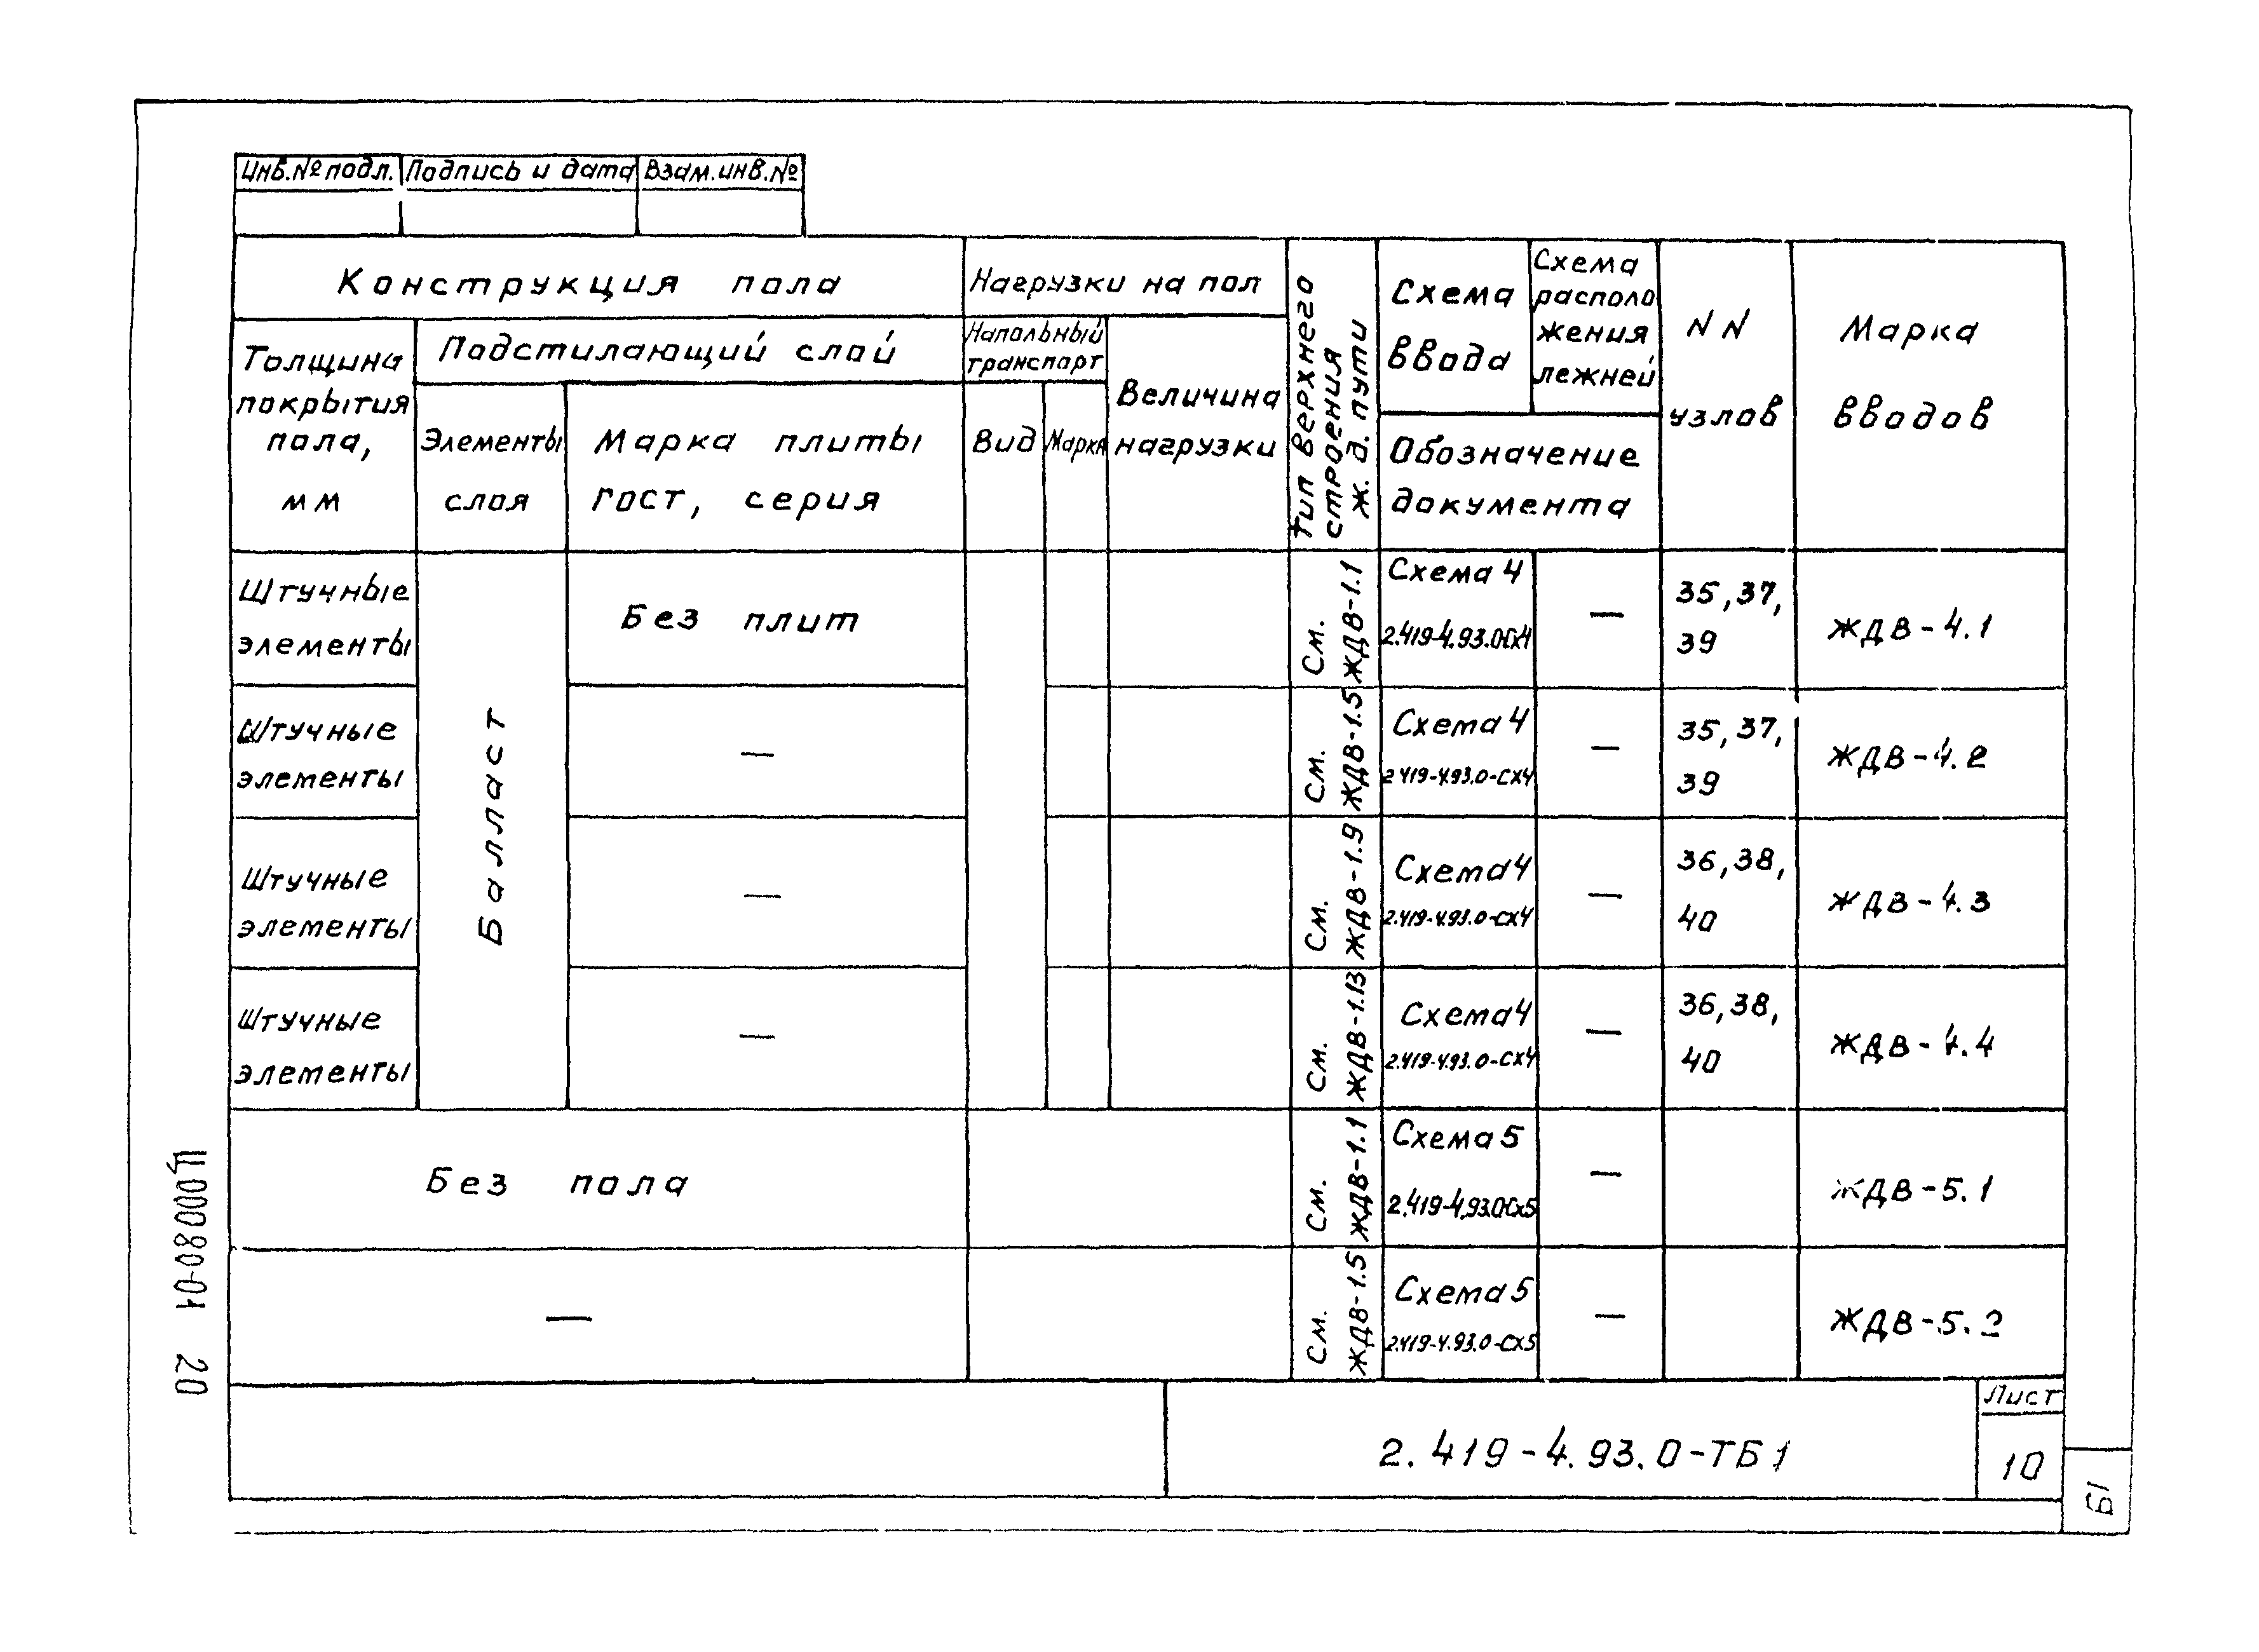 Инв.№ подл. Подпись и дата Взам.инв.№
Конструкция пола
Нагрузки на пол
Тип верхнего
строения
ж. д. пути
Схема
ввода
Схема
располо
жения
лежней
NN
узлов
Марка
вводов
Толщина
покрытия
пола,
мм
Подстилающий слой
Элементы
слоя
Марка плиты
гост, серия
Напольный
транспорт
Вид
Марка
Величина
нагрузки
Обозначение
документа
Штучные
элементы
Балласт
Без плит
См.
ЖДВ-1.1
Схема 4
2.419-4.93.0-Сх4
—
35, 37,
39
ЖДВ-4.1
Штучные
элементы
—
См.
ЖДВ-1.5
Схема 4
2.419-4.93.0-СХ4
—
35, 37,
39
ЖДВ-4.2
Штучные
элементы
—
См.
ЖДВ-1.9
Схема 4
2.419-4.93.0-СХ4
—
36, 38,
40
ЖДВ-4.3
Штучные
элементы
—
См.
ЖДВ-1.13
Схема 4
2.419-4.93.0-СХ4
—
36, 38,
40
ЖДВ-4.4
Без пола
См.
ЖДВ-1.1
Схема 5
2.419-4.93.0-Сх5
—
ЖДВ-5.1
—
См.
ЖДВ-1.5
Схема 5
2.419-4.93.0-СХ5
—
ЖДВ-5.2
2.419-4.93.0-ТБ1
Лист
10
19
Ц00080-01 20